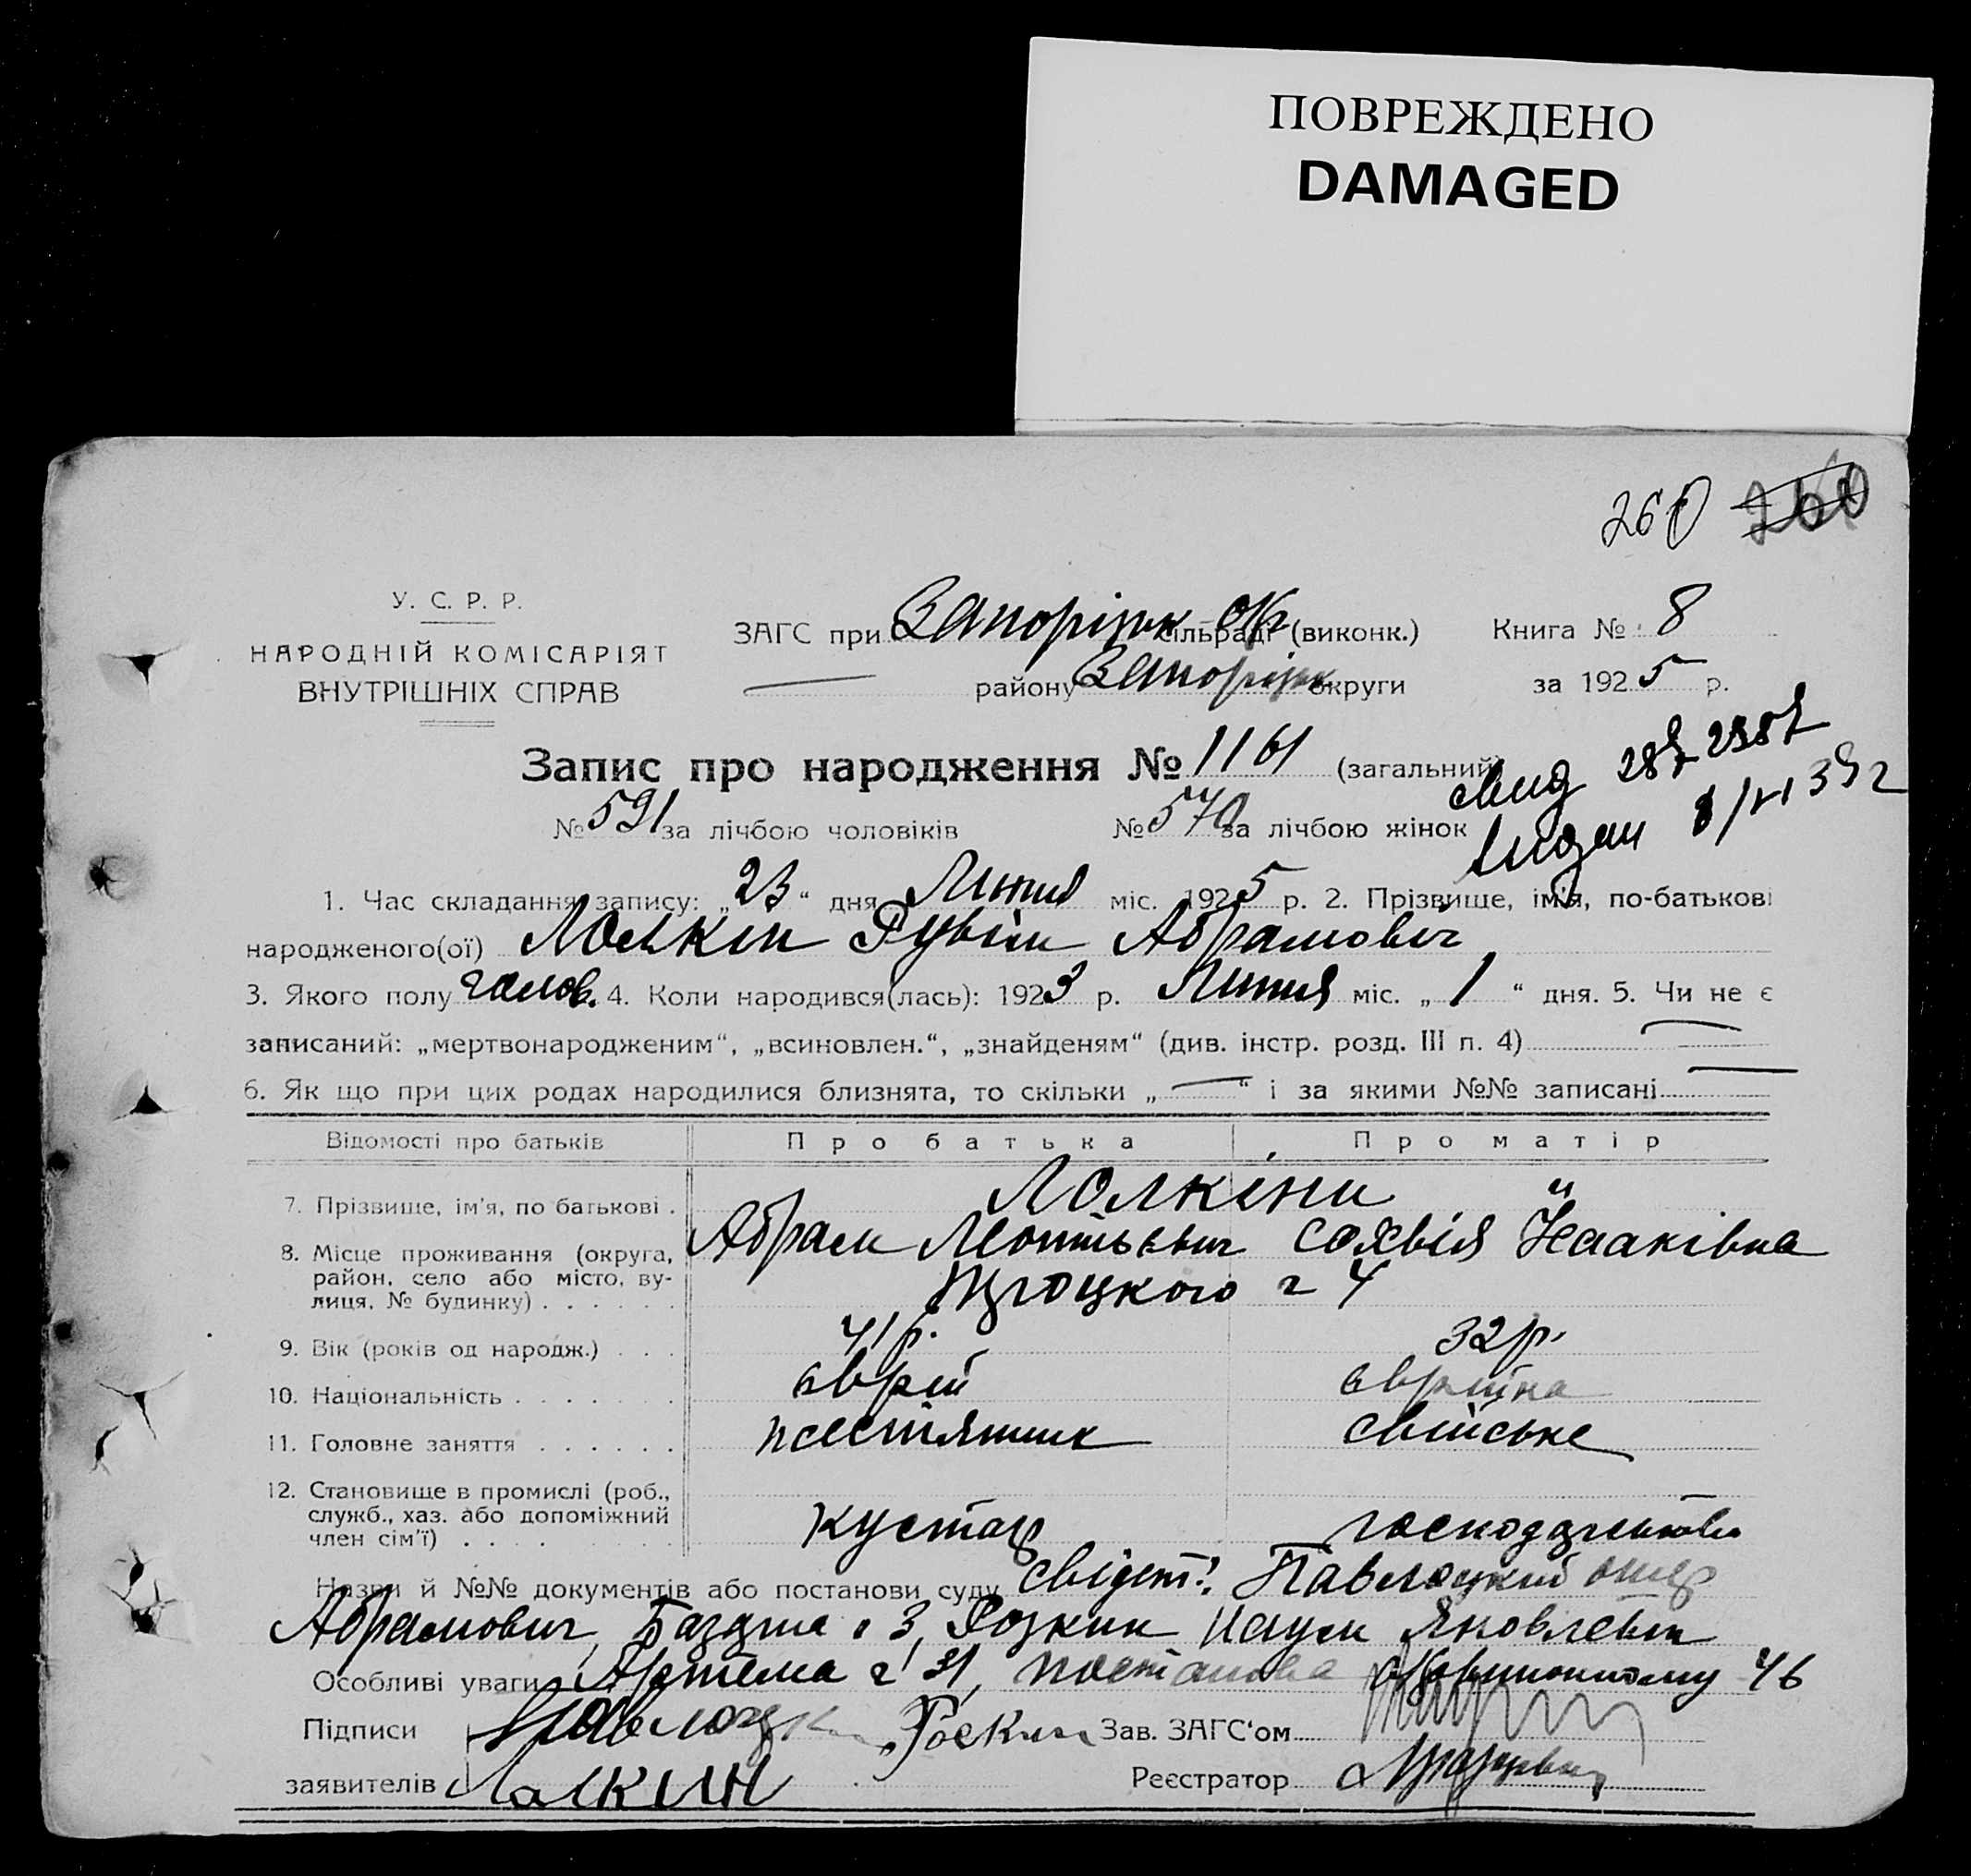 ПОВРЕЖДЕНО
DAMAGED
260 260
У. С. Р. Р.
НАРОДНІЙ КОМІСАРІЯТ
ВНУТРІШНІХ СПРАВ
ЗАГС при Запоріжж Ок сільраді (виконк.)
району Запоріжж округи
Книга № 8
за 1925 р.
Запис про народження № 1161 (загальний)
№ 591 за лічбою чоловіків № 570 за лічбою жінок
1. Час складання запису: „23“ дня Липня міс. 1925 р. 2. Прізвище, імія, по-батькові
народженого(ої) Лолкін Рувім Абрамовіч
3. Якого полу чолов. 4. Коли народився(лась): 1923 р. Липня міс. „1“ дня. 5. Чи не є
записаний: „мертвонародженим“, „всиновлен.“, „знайденям“ (див. інстр. розд. III п. 4)
6. Як що при цих родах народилися близнята, то скільки „—“ і за якими №№ записані
Відомості про батьків Про батька Про матір
7. Прізвище, ім'я, по батькові . Лолкіни
Абрам Исааківна
8. Місце проживання (округа,
район, село або місто, ву-
лиця, № будинку) . . . . . . Троцкого ч 4
9. Вік (років од народж.) . . . 41 р. 32 р.
10. Національність . . . . . . . єврей єврейка
11. Головне заняття . . . . . . свійське
12. Становище в промислі (роб.,
служб., хаз. або допоміжний
член сім'ї) . . . . кустар господарство
Назви й №№ документів або постанови суду свідет: Павлоцкий
Абрамович, 3, Розкин Наум Яковлевич
Особливі уваги Артема ч 31, постанова 46
Підписи
заявителів Павлоцкий Роскин
Лолкин
Зав. ЗАГС'ом
Реєстратор